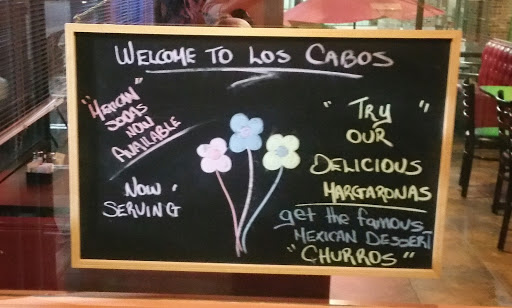 WELCOME TO LOS CABOS
"MEXICAN"
SODAS
NOW
AVAILABLE
NOW
SERVING
"TRY"
OUR
DELICIOUS
MARGARONAS
get the famous
MEXICAN DESSERT
"CHURROS"